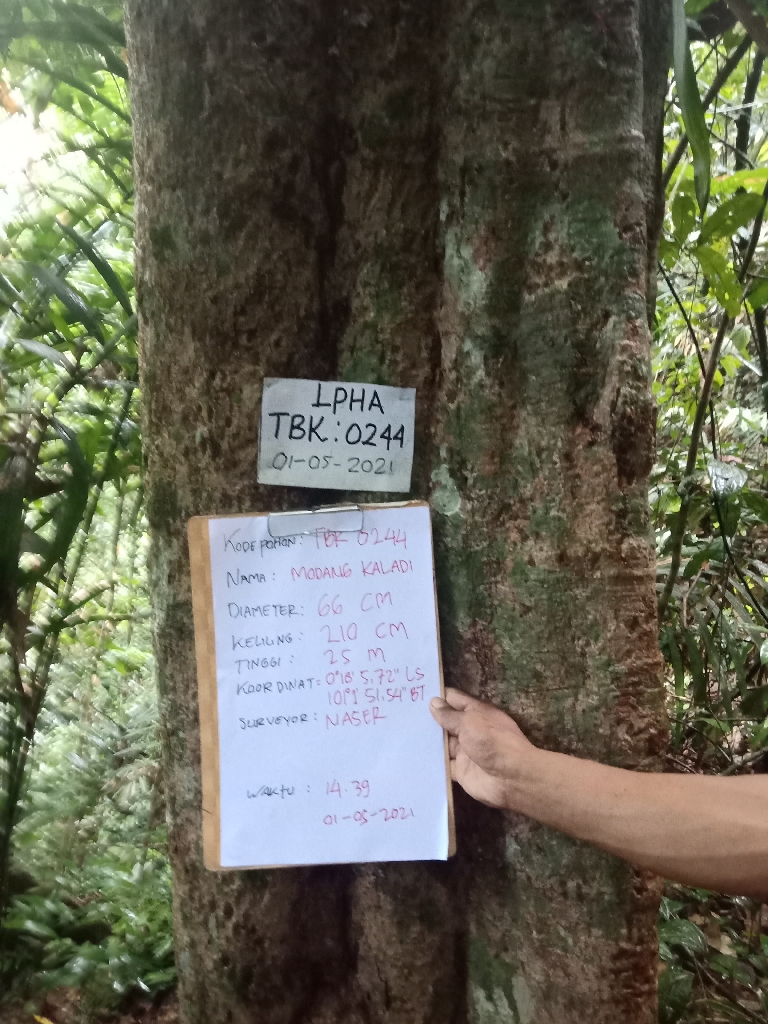 LPHA
TBK: 0244
01-05-2021
KODE POHON: TBK 0244
NAMA: MODANG KALADI
DIAMETER: 66 CM
KELILING: 210 CM
TINGGI: 25 M
KOORDINAT: 0°18' 5,72" LS
101°1' 51,54" BT
SURVEYOR: NASER
WAKTU: 14.39
01-05-2021